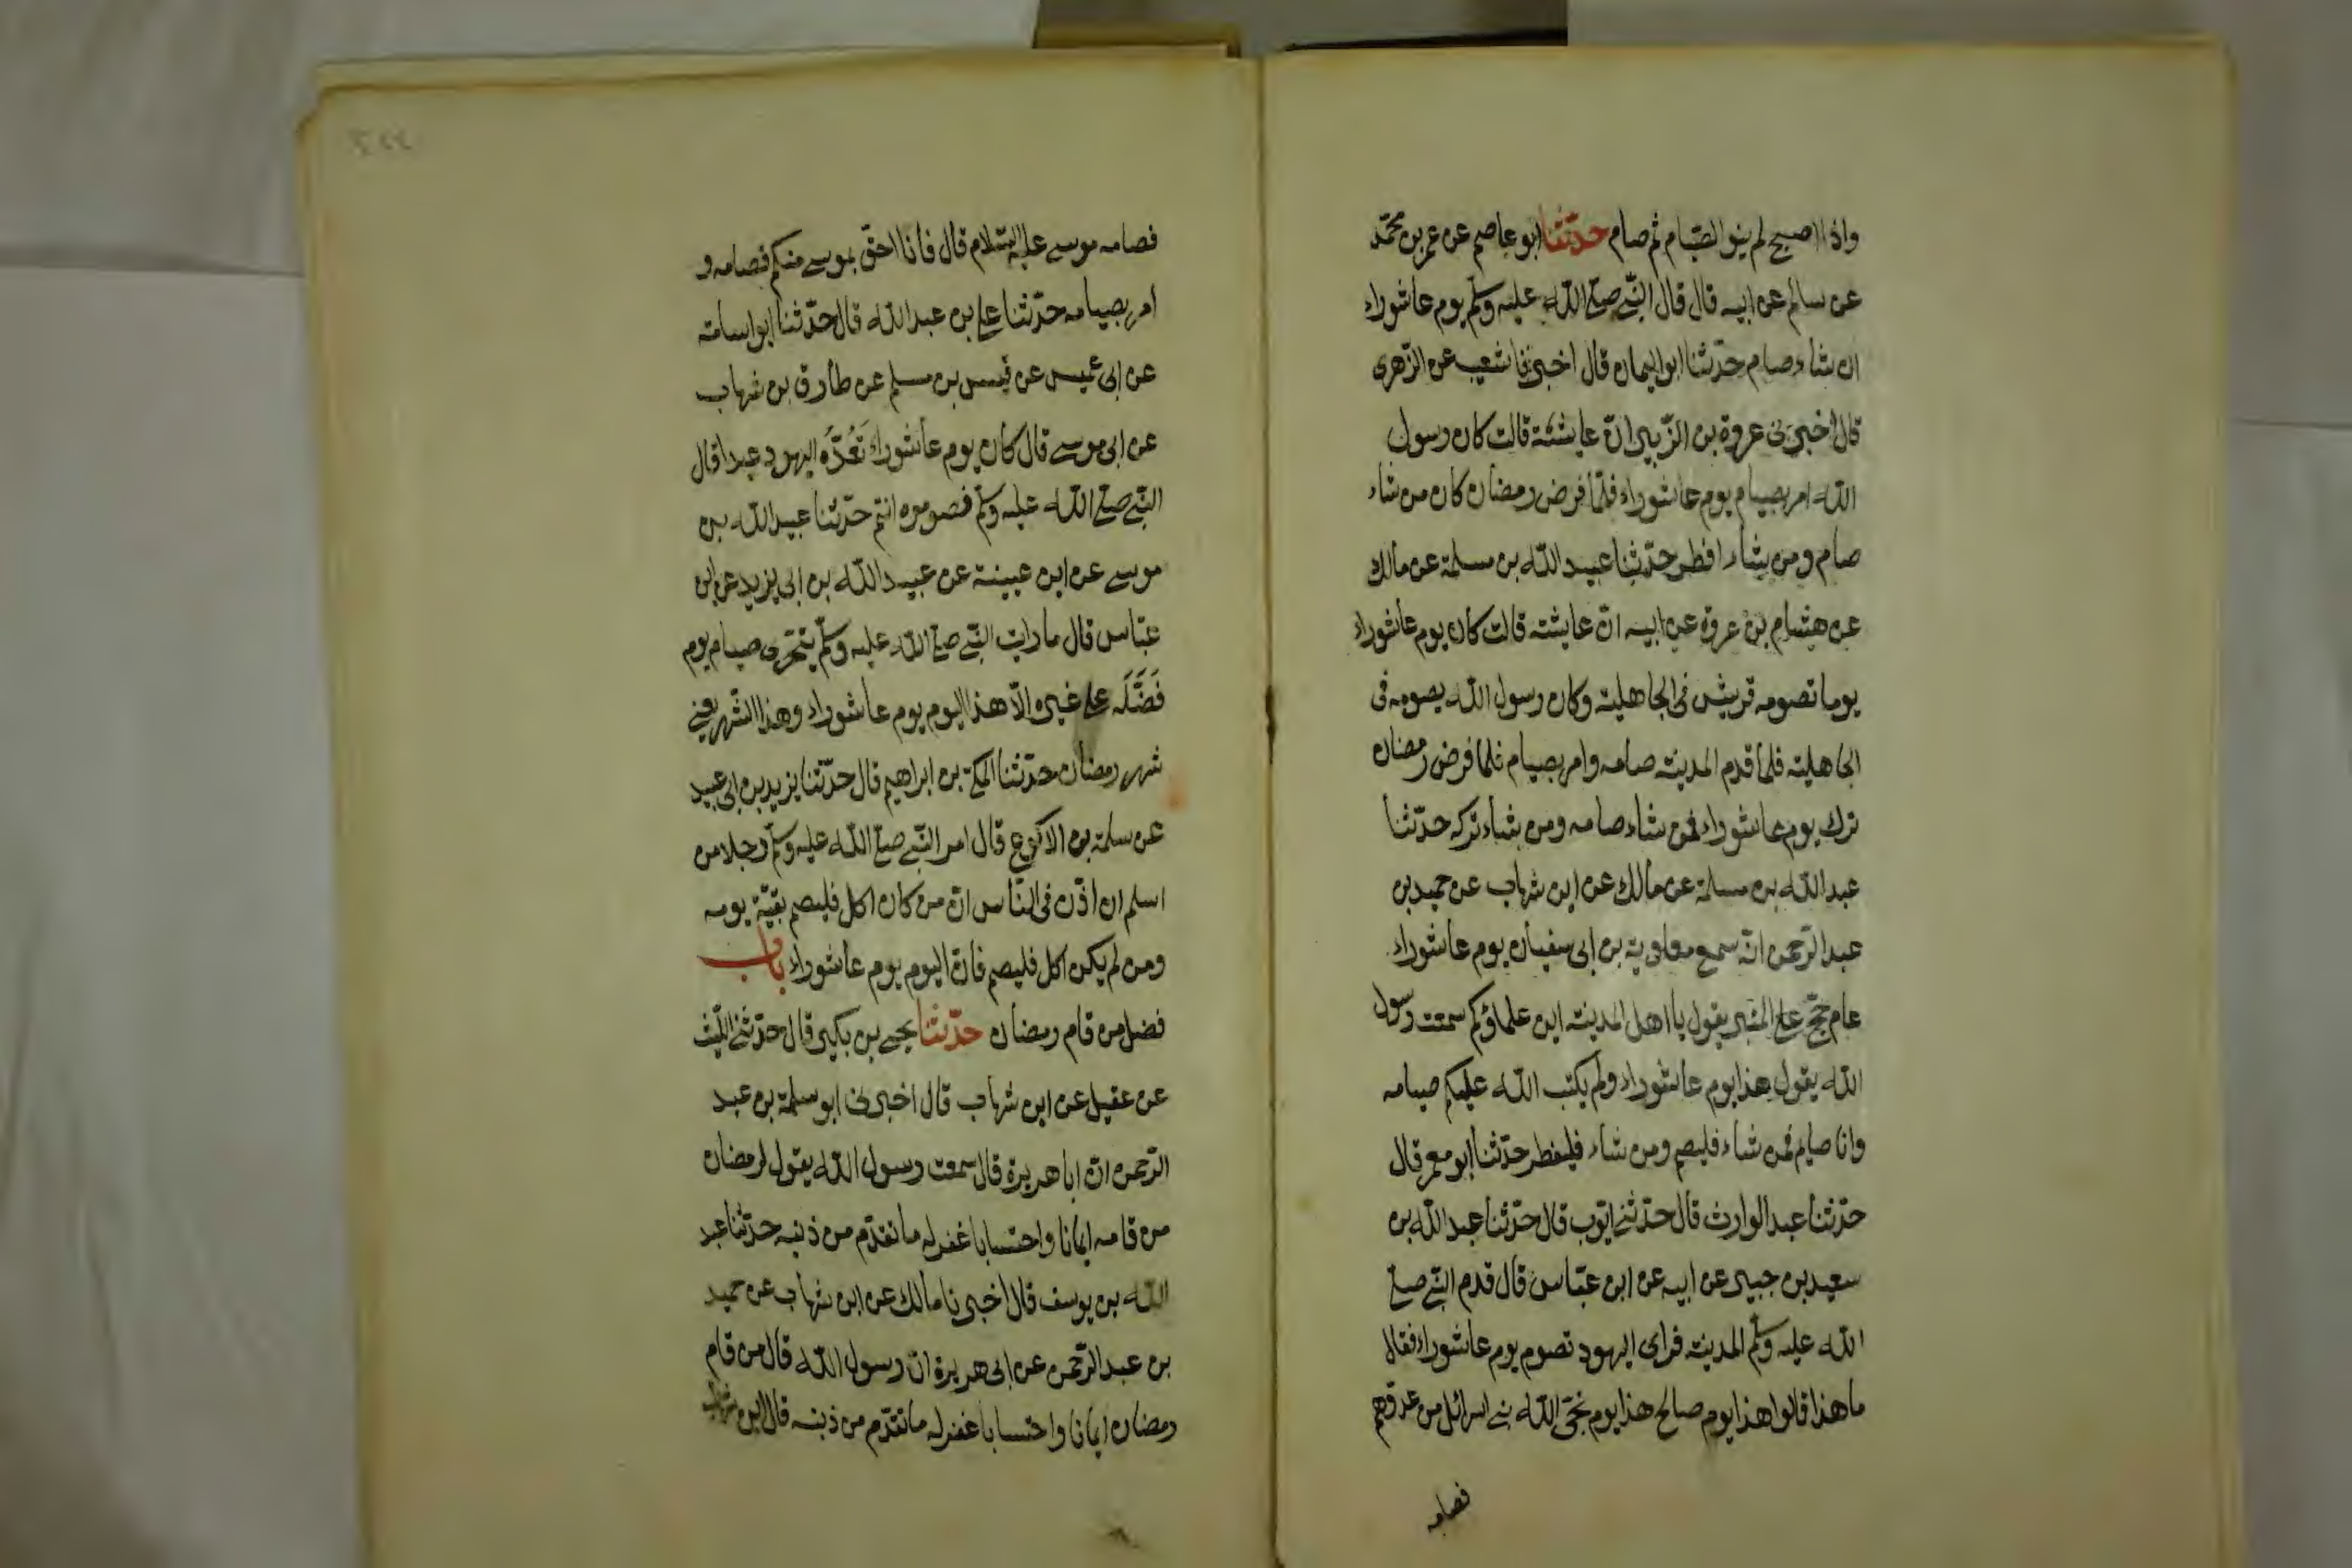 واذا اصبح لم ينو الصّيام ثم صام حدّثنا ابو عاصم عن عمر بن محمّد
عن سالم عن ابيه قال قال النّبي صلى اللّه عليه وسلم يوم عاشوراء
ان شاء صام حدّثنا ابو اليمان قال اخبرنا شعيب عن الزّهرى
قال اخبرنى عروة بن الزّبير انّ عايشة قالت كان رسول
اللّه امر بصيام يوم عاشوراء فلمّا فرض رمضان كان من شاء
صام ومن شاء افطر حدّثنا عبد اللّه بن مسلمة عن مالك
عن هشام بن عروة عن ابيه انّ عايشة قالت كان يوم عاشوراء
يوما تصومه قريش فى الجاهلية وكان رسول اللّه يصومه فى
الجاهلية فلما قدم المدينة صامه وامر بصيام فلما فرض رمضان
ترك يوم عاشوراء فمن شاء صامه ومن شاء تركه حدّثنا
عبد اللّه بن مسلمة عن مالك عن ابن شهاب عن حميد بن
عبد الرّحمن انّه سمع معاوية بن ابى سفيان يوم عاشوراء
عام حجّ على المنبر يقول يا اهل المدينة اين علماؤكم سمعت رسول
اللّه يقول هذا يوم عاشوراء ولم يكتب اللّه عليكم صيامه
وانا صايم فمن شاء فليصم ومن شاء فليفطر حدّثنا ابو معمر قال
حدّثنا عبد الوارث قال حدّثنى ايّوب قال حدّثنا عبد اللّه بن
سعيد بن جبير عن ابيه عن ابن عبّاس قال قدم النّبي صلى
اللّه عليه وسلم المدينة فراى اليهود تصوم يوم عاشوراء فقال
ما هذا قالوا هذا يوم صالح هذا يوم نجّى اللّه بنى اسرائل من عدوّهم
فصامه
فصامه موسى عليه السّلام قال فانا احقّ بموسى منكم فصامه و
امر بصيامه حدّثنا على بن عبد اللّه قال حدّثنا ابو اسامة
عن ابى عميس عن قيس بن مسلم عن طارق بن شهاب
عن ابى موسى قال كان يوم عاشوراء تَعُدُّه اليهود عيدا قال
النّبي صلى اللّه عليه وسلم فصوموه انتم حدّثنا عبيد اللّه بن
موسى عن ابن عيينة عن عبيد اللّه بن ابى يزيد عن ابن
عبّاس قال ما رايت النّبي صلى اللّه عليه وسلم يتحرّى صيام يوم
فَضَّلَه على غيره الّا هذا اليوم يوم عاشوراء وهذا الشّهر يعنى
شهر رمضان حدّثنا المكّى بن ابراهيم قال حدّثنا يزيد بن ابى عبيد
عن سلمة بن الاكوع قال امر النّبي صلى اللّه عليه وسلم رجلا من
اسلم ان اذّن فى النّاس انّ من كان اكل فليصم بقيّة يومه
ومن لم يكن اكل فليصم فانّ اليوم يوم عاشوراء باب
فضل من قام رمضان حدّثنا يحيى بن بكير قال حدّثنى اللّيث
عن عقيل عن ابن شهاب قال اخبرنى ابو سلمة بن عبد
الرّحمن انّ ابا هريرة قال سمعت رسول اللّه يقول لرمضان
من قامه ايمانا واحتسابا غفر له ما تقدّم من ذنبه حدّثنا عبد
اللّه بن يوسف قال اخبرنا مالك عن ابن شهاب عن حميد
بن عبد الرّحمن عن ابى هريرة انّ رسول اللّه قال من قام
رمضان ايمانا واحتسابا غفر له ما تقدّم من ذنبه قال ابن شهاب